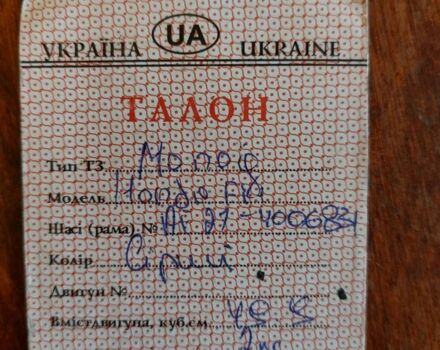 УКРАЇНА UA UKRAINE
ТАЛОН
Тип ТЗ Мопед
Модель Хонда
Шасі (рама) № AF 27-4006831
Колір Сірий
Двигун №
Вміст двигуна, куб.см. 49